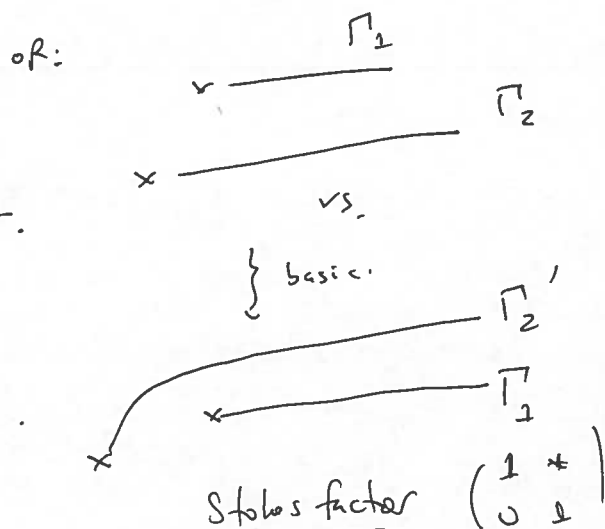 of:
Γ1
x
Γ2
x
vs.
} basic.
Γ2'
Γ1
x
x
Stokes factor (1 * 0 1)